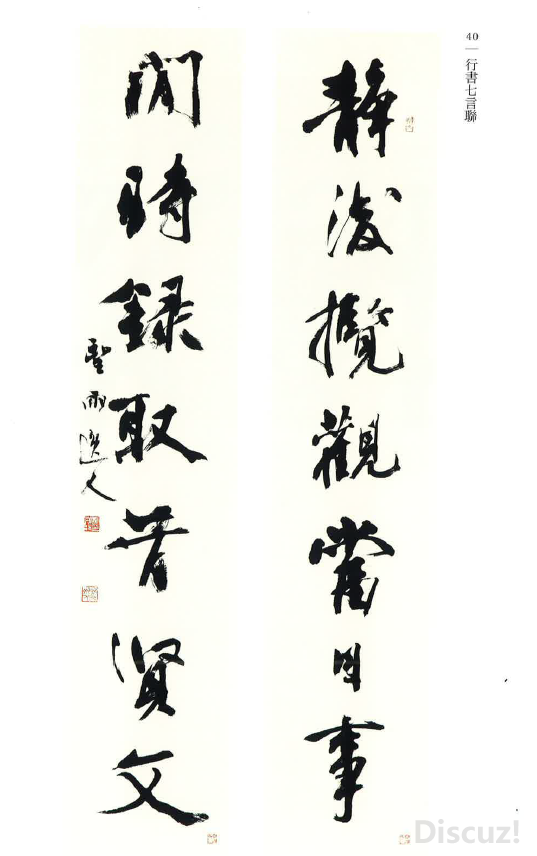 40｜行書七言聯
靜後攬觀當日事
閒時錄取昔賢文
雨人
Discuz!